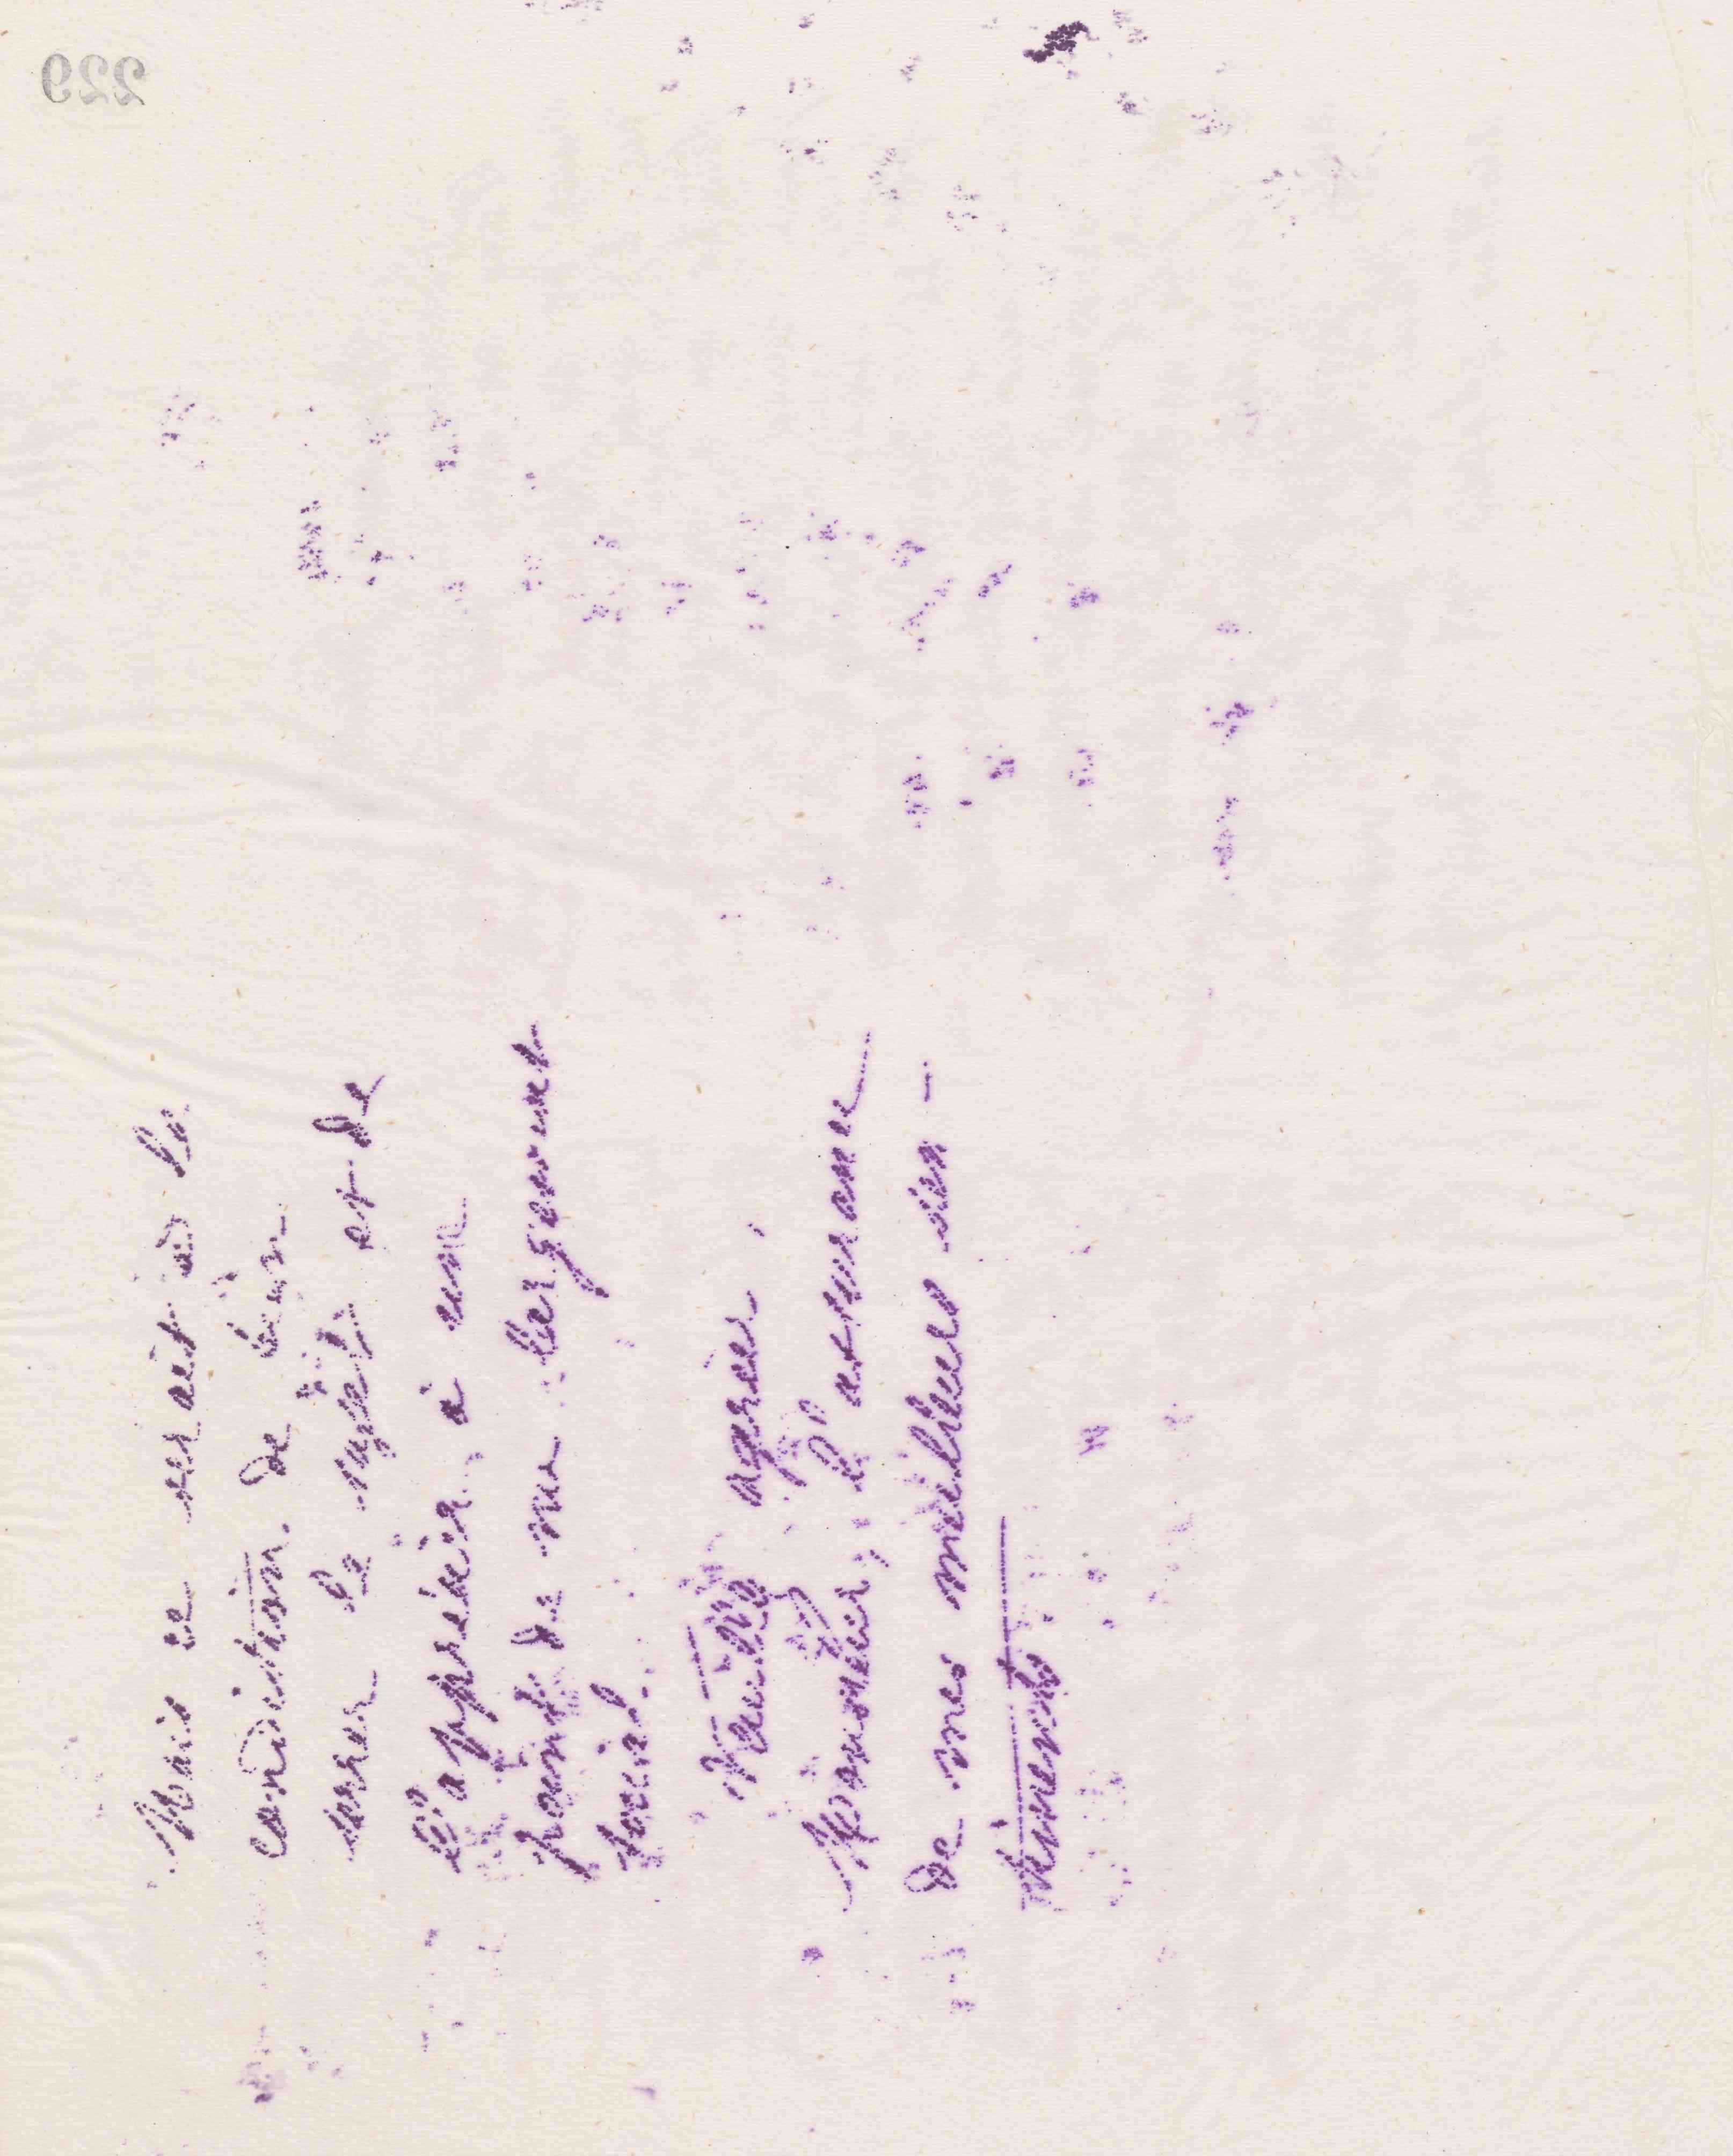 229
Mais ce serait à la
condition de bien
serrer le sujet et de
l'apprécier à un
point de vue largement
social.
Veuillez agréer,
Monsieur, l'assurance
de mes meilleurs sen-
timents